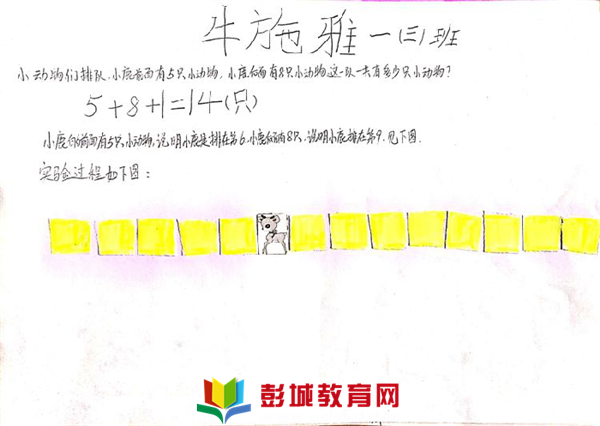 牛施雅一(三)班
小动物们排队,小鹿前面有5只小动物,小鹿后面有8只小动物,这一队一共有多少只小动物?
5+8+1=14(只)
小鹿的前面有5只小动物,说明小鹿是排在第6,小鹿后面有8只,说明小鹿排在第9.见下图.
实验过程如下图:
彭城教育网